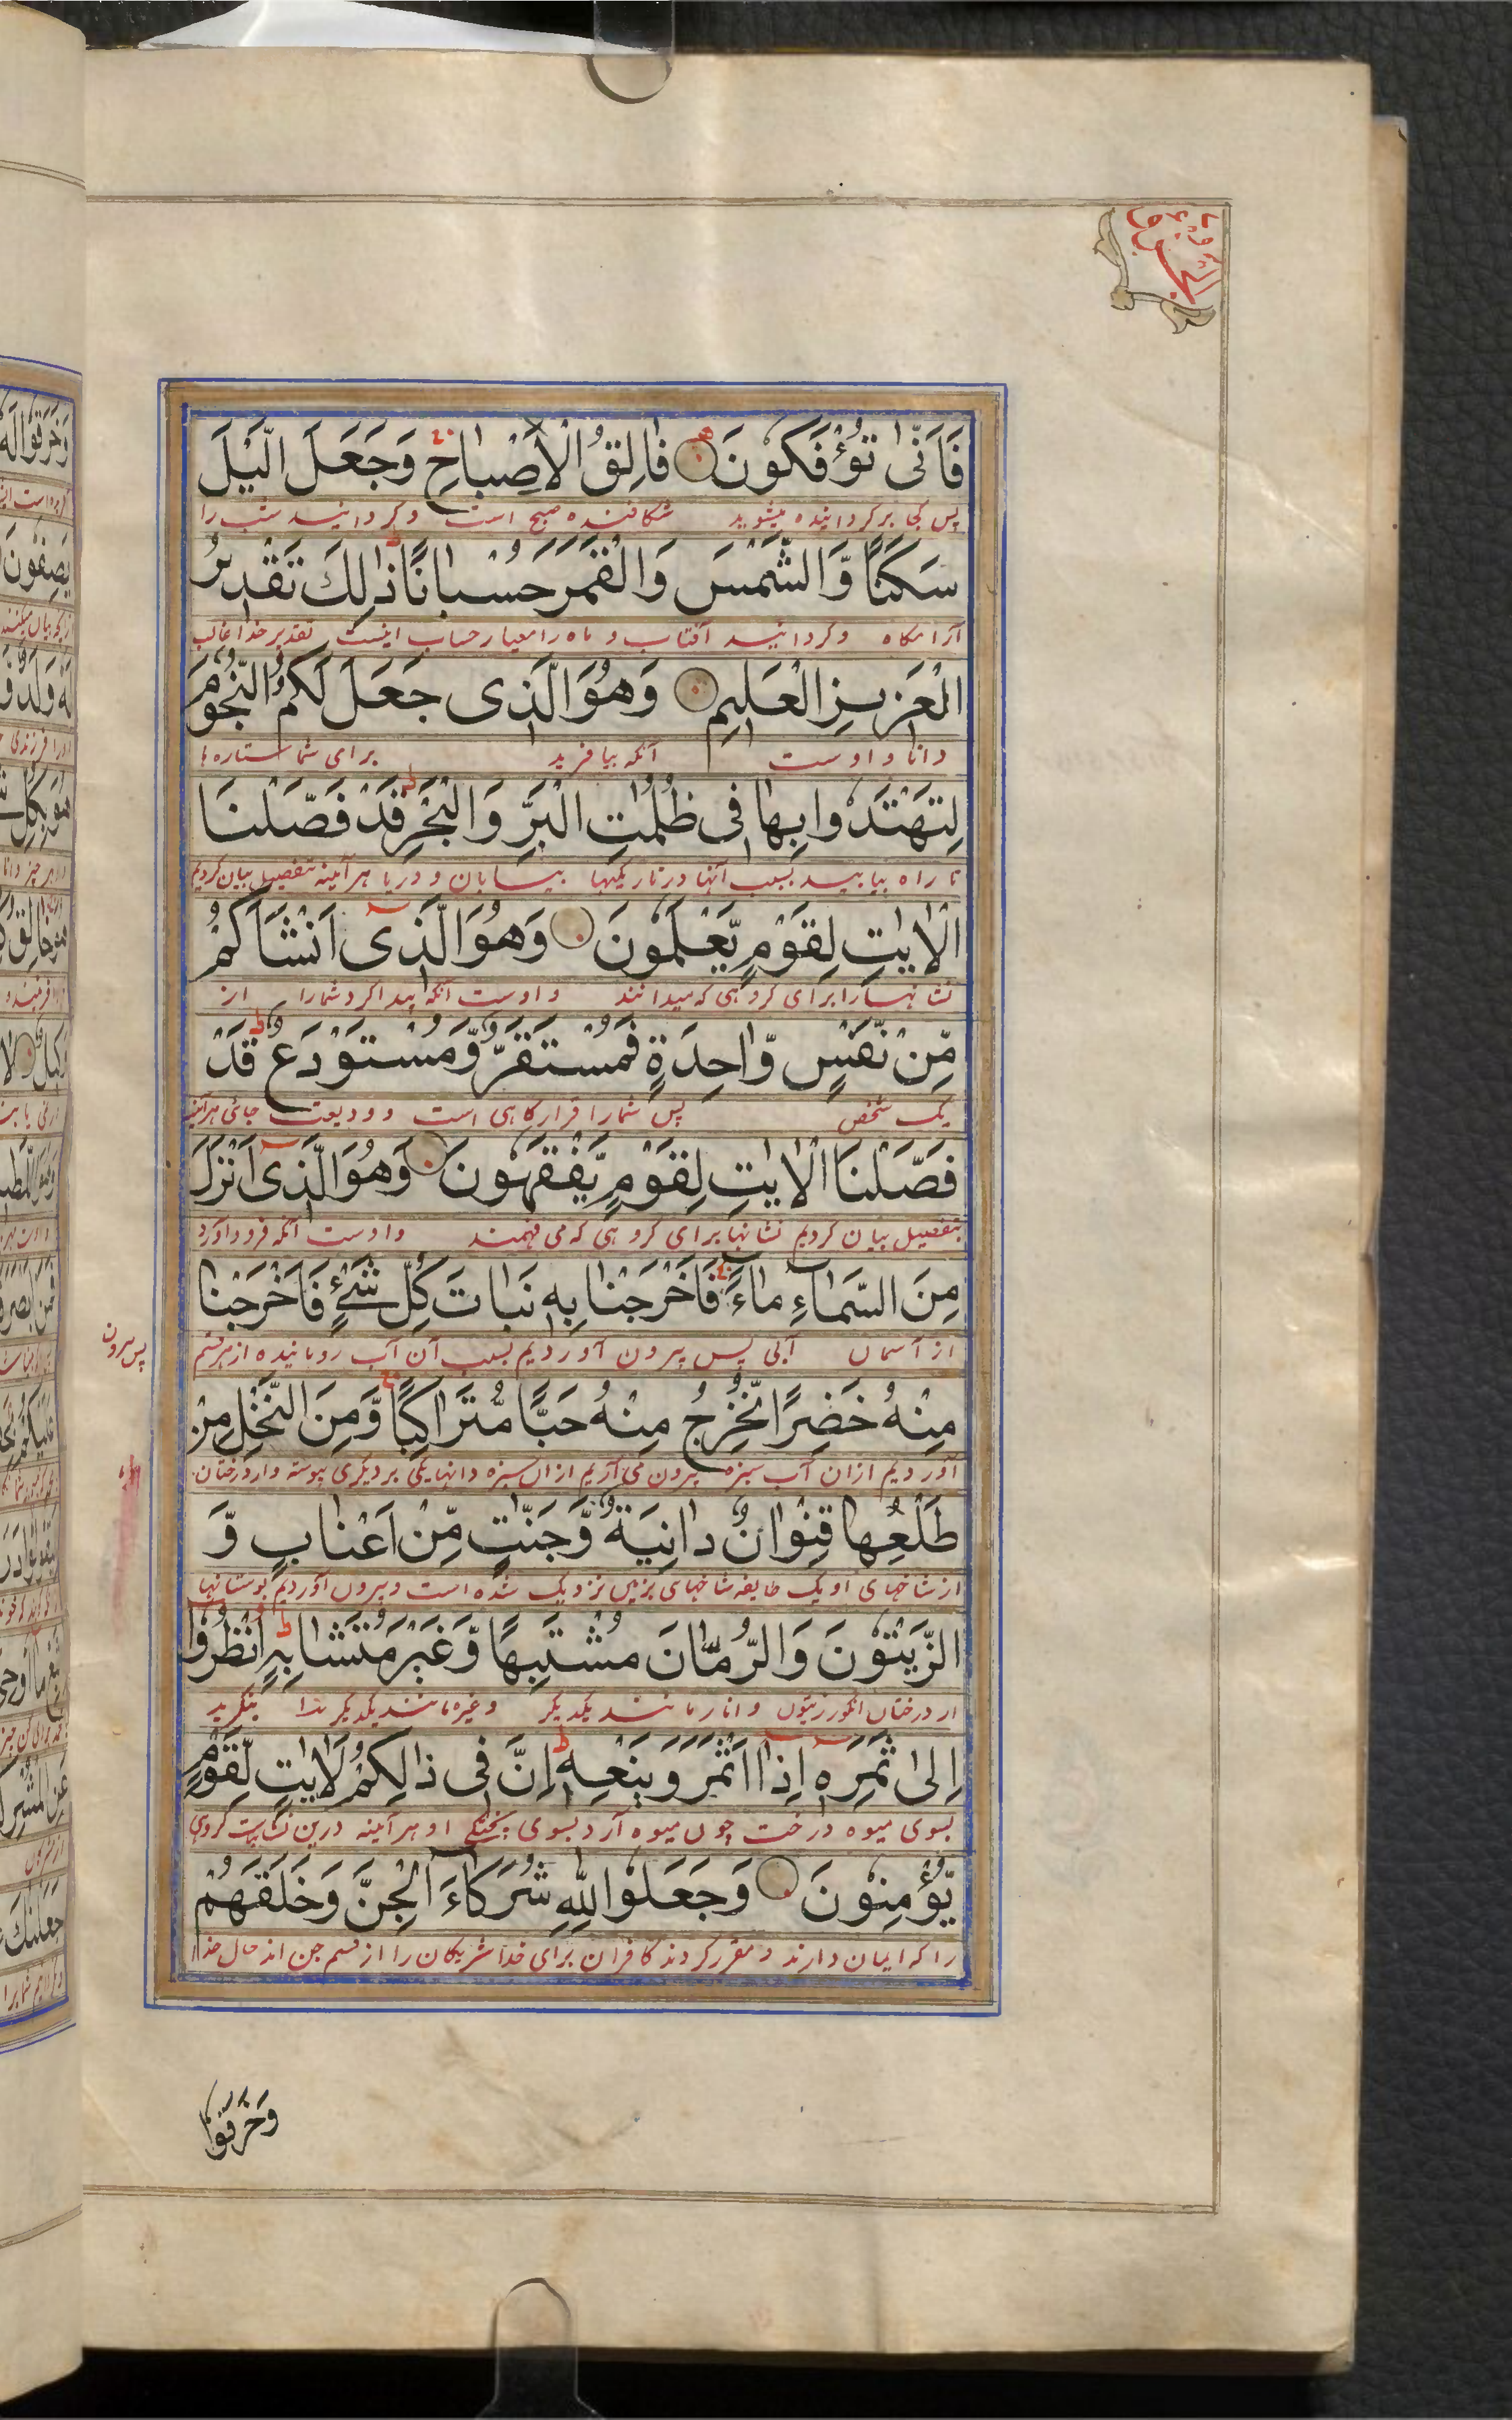 فَاَنّٰى تُؤْفَكُوْنَ فَالِقُ الْاِصْبَاحِ وَجَعَلَ الَّيْلَ
پس کجا برگردانیده میشوید شکافنده صبح است وگردانید شب را
سَكَنًا وَّالشَّمْسَ وَالْقَمَرَ حُسْبَانًا ذٰلِكَ تَقْدِيْرُ
آرامگاه وگردانید آفتاب و ماه را معیار حساب اینست تقدیر خدا غالب
الْعَزِيْزِ الْعَلِيْمِ وَهُوَ الَّذِى جَعَلَ لَكُمُ النُّجُوْمَ
دانا و اوست آنکه بیافرید برای شما ستاره ها
لِتَهْتَدُوْا بِهَا فِى ظُلُمٰتِ الْبَرِّ وَالْبَحْرِ قَدْ فَصَّلْنَا
تا راه بیابید بسبب آنها در تاریکیها بیابان و دریا هر آئینه بتفصیل بیان کردیم
الْاٰيٰتِ لِقَوْمٍ يَّعْلَمُوْنَ وَهُوَ الَّذِى اَنْشَاَكُمْ
نشانها را برای گروهی که میدانند و اوست آنکه پیدا کرد شما را از
مِّنْ نَفْسٍ وَّاحِدَةٍ فَمُسْتَقَرٌّ وَّمُسْتَوْدَعٌ قَدْ
یک شخص پس شما را قرارگاهی است و ودیعت جائی هر آئینه
فَصَّلْنَا الْاٰيٰتِ لِقَوْمٍ يَّفْقَهُوْنَ وَهُوَ الَّذِى اَنْزَلَ
بتفصیل بیان کردیم نشانها برای گروهی که می فهمند و اوست آنکه فرود آورد
مِنَ السَّمَاءِ مَاءً فَاَخْرَجْنَا بِهٖ نَبَاتَ كُلِّ شَىْءٍ فَاَخْرَجْنَا
از آسمان آبی پس بیرون آوردیم بسبب آن آب روئانیده از هر قسم
پس بیرون
مِنْهُ خَضِرًا نُّخْرِجُ مِنْهُ حَبًّا مُّتَرَاكِبًا وَّمِنَ النَّخْلِ مِنْ
آوردیم ازان آب سبزه بیرون می آریم ازان سبزه دانها یکی بر دیگری پیوسته و از درختان
طَلْعِهَا قِنْوَانٌ دَانِيَةٌ وَّجَنّٰتٍ مِّنْ اَعْنَابٍ وَّ
از شاخهای او یک طایفه شاخهای بزمین نزدیک شده است و بیرون آوردیم بوستانها
الزَّيْتُوْنَ وَالرُّمَّانَ مُشْتَبِهًا وَّغَيْرَ مُتَشَابِهٍ اُنْظُرُوْا
از درختان انگور زیتون و انار مانند یکدیگر و غیر مانند یکدیگر بنگرید
اِلٰى ثَمَرِهٖ اِذَا اَثْمَرَ وَيَنْعِهٖ اِنَّ فِى ذَالِكُمْ لَاٰيٰتٍ لِّقَوْمٍ
بسوی میوه درخت چون میوه آرد بسوی پختگی او هر آئینه درین نشانهاست گروهی
يُّؤْمِنُوْنَ وَجَعَلُوْا لِلّٰهِ شُرَكَاءَ الْجِنَّ وَخَلَقَهُمْ
را که ایمان دارند و مقرر کردند کافران برای خدا شریکان را از قسم جن اند حال
وَخَرَقُوْا